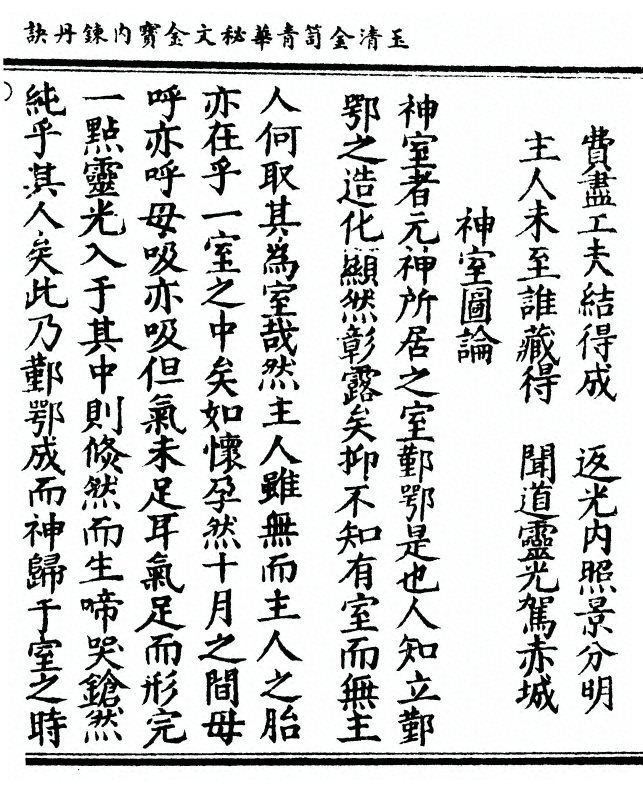 玉清金笥青華秘文金寶內鍊丹訣
費盡工夫結得成　返光内照景分明
主人未至誰藏得　聞道靈光駕赤城
神室圖論
神室者元神所居之室鄞鄂是也人知立鄞
鄂之造化顯然彰露矣抑不知有室而無主
人何取其為室哉然主人雖無而主人之胎
亦在乎一室之中矣如懷孕然十月之間母
呼亦呼母吸亦吸但氣未足耳氣足而形完
一點靈光入于其中則倐然而生啼哭鎗然
純乎淇人矣此乃鄞鄂成而神歸于室之時